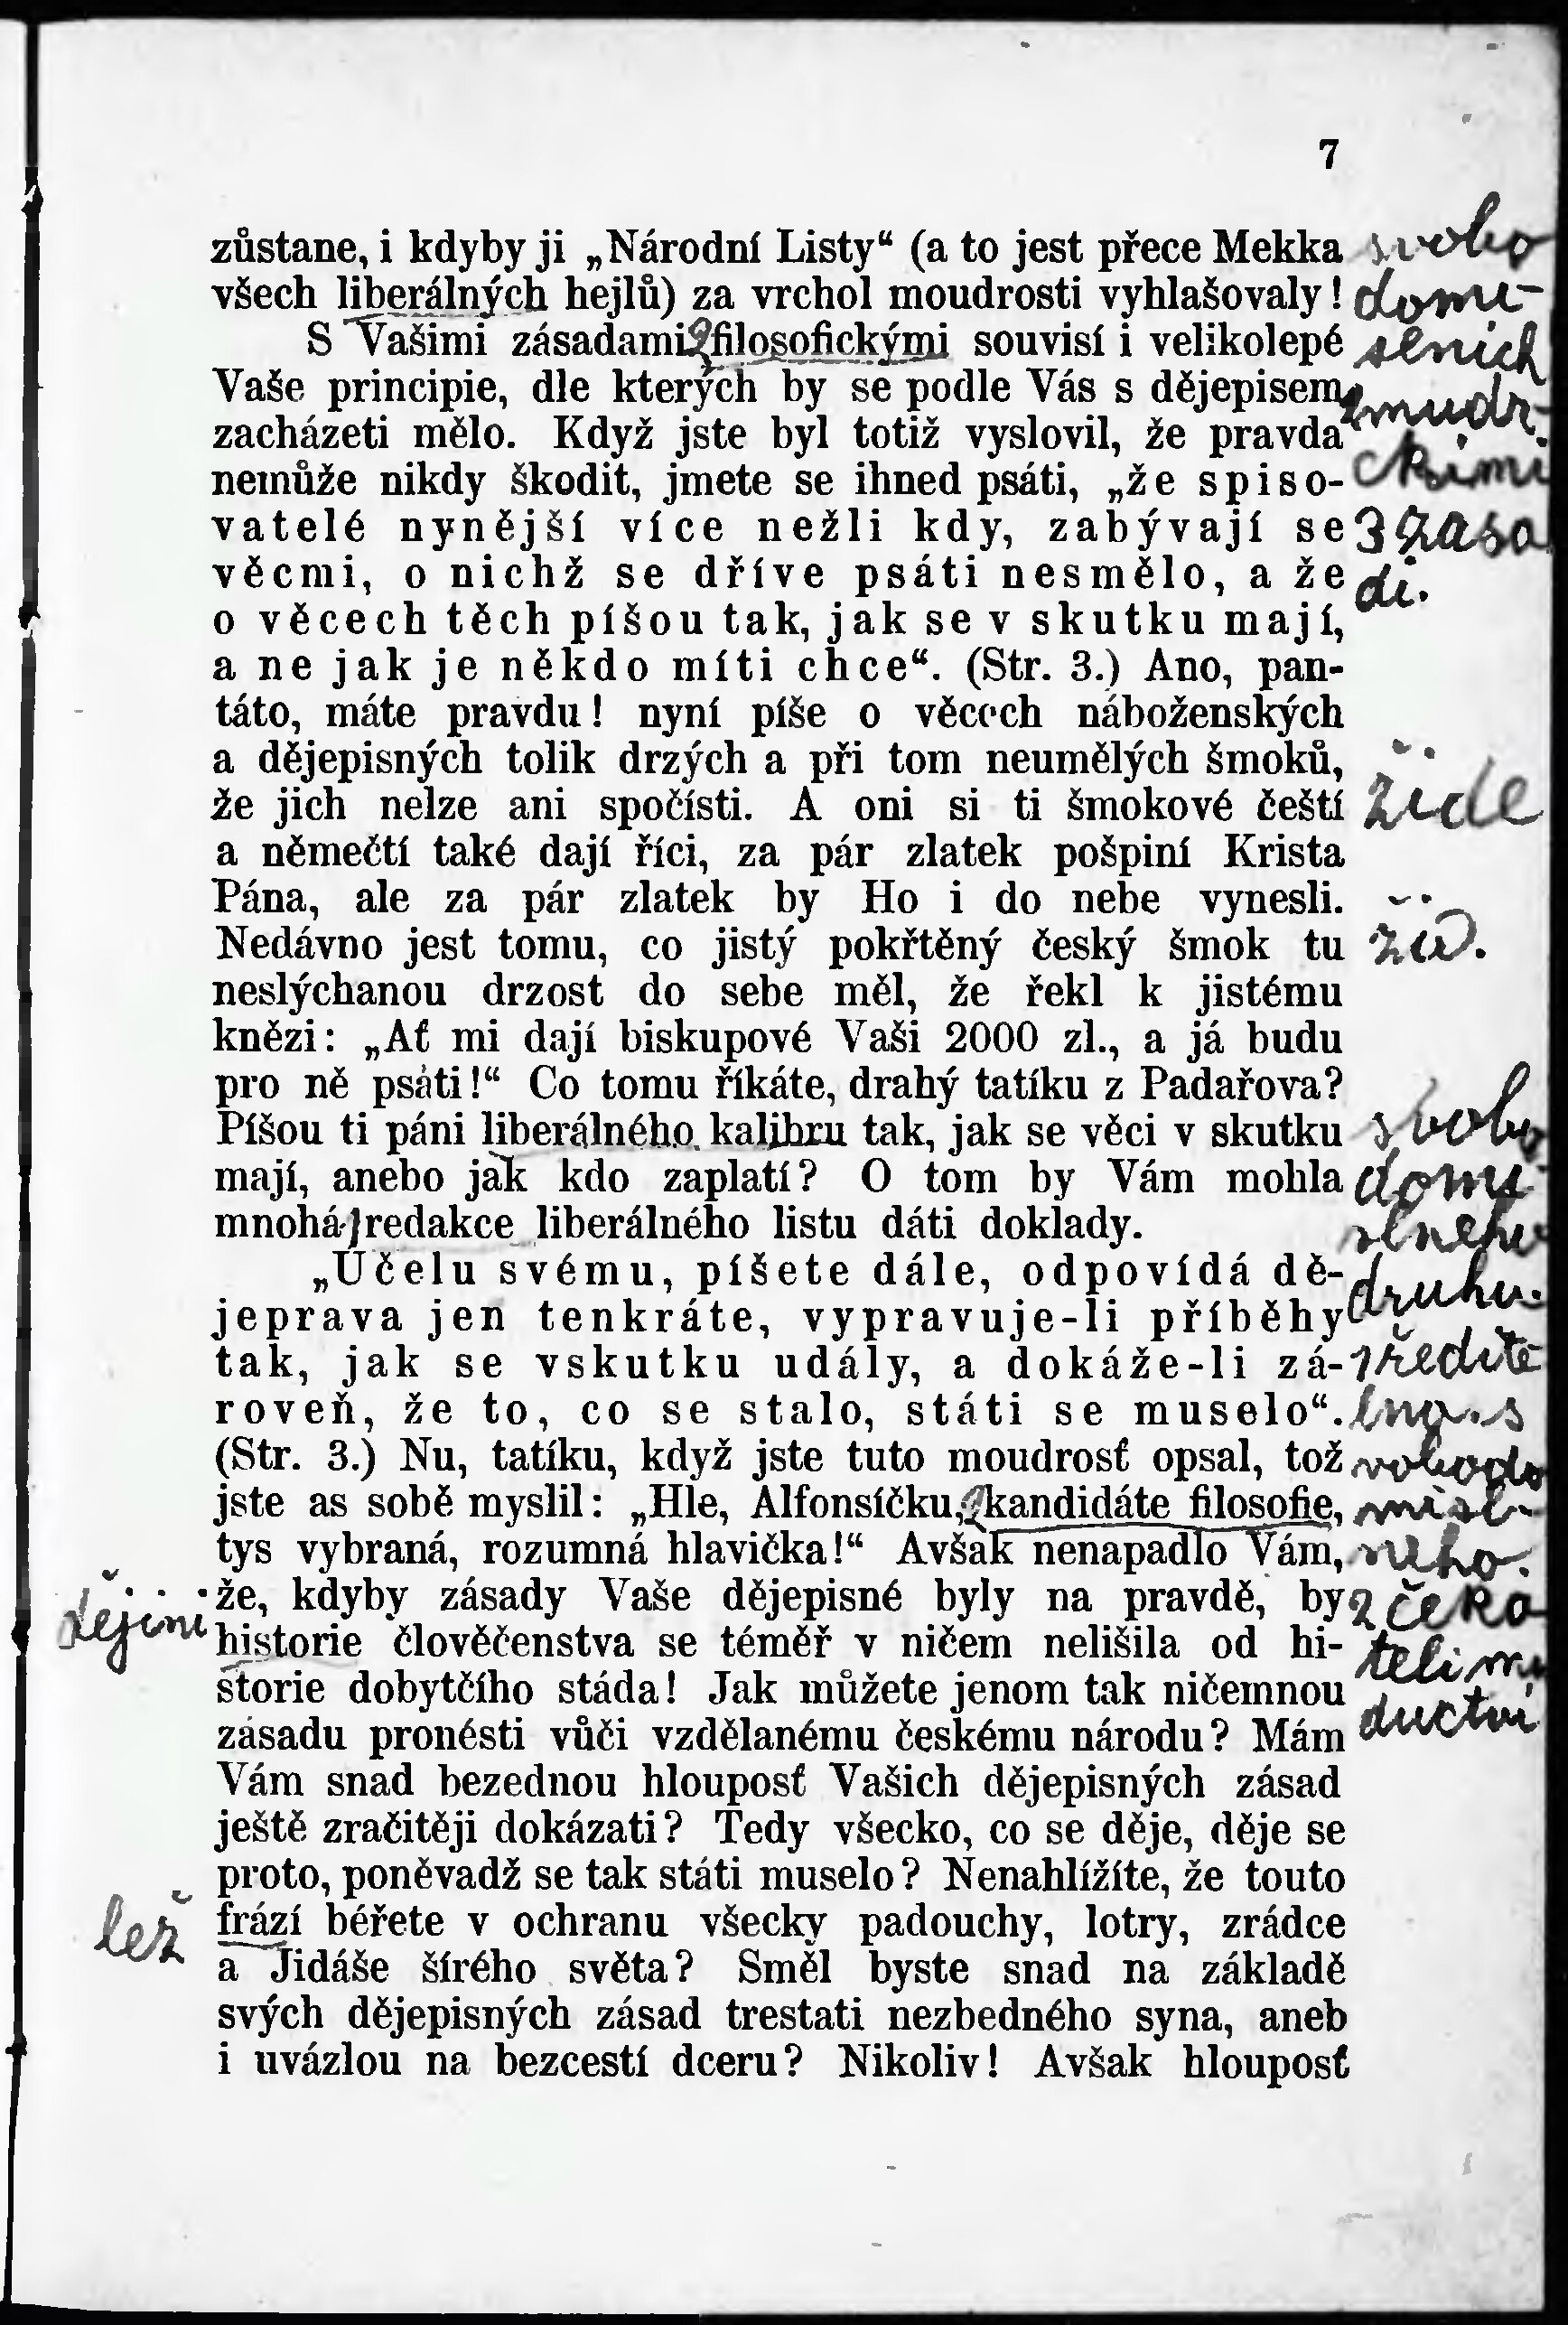 7
zůstane, i kdyby ji „Národní Listy“ (a to jest přece Mekka
všech liberálných hejlů) za vrchol moudrosti vyhlašovaly!
S Vašimi zásadami filosofickými souvisí i velikolepé
Vaše principie, dle kterých by se podle Vás s dějepisem
zacházeti mělo. Když jste byl totiž vyslovil, že pravda
nemůže nikdy škodit, jmete se ihned psáti, „že spiso-
vatelé nynější více nežli kdy, zabývají se
věcmi, o nichž se dříve psáti nesmělo, a že
o věcech těch píšou tak, jak se v skutku mají,
a ne jak je někdo míti chce“. (Str. 3.) Ano, pan-
táto, máte pravdu! nyní píše o věcech náboženských
a dějepisných tolik drzých a při tom neumělých šmoků,
že jich nelze ani spočísti. A oni si ti šmokové čeští
a němečtí také dají říci, za pár zlatek pošpiní Krista
Pána, ale za pár zlatek by Ho i do nebe vynesli.
Nedávno jest tomu, co jistý pokřtěný český šmok tu
neslýchanou drzost do sebe měl, že řekl k jistému
knězi: „Ať mi dají biskupové Vaši 2000 zl., a já budu
pro ně psáti!“ Co tomu říkáte, drahý tatíku z Padařova?
Píšou ti páni liberálného kalibru tak, jak se věci v skutku
mají, anebo jak kdo zaplatí? O tom by Vám mohla
mnohá redakce liberálného listu dáti doklady.
„Účelu svému, píšete dále, odpovídá dě-
jeprava jen tenkráte, vypravuje-li příběhy
tak, jak se vskutku udály, a dokáže-li zá-
roveň, že to, co se stalo, státi se muselo“.
(Str. 3.) Nu, tatíku, když jste tuto moudrosť opsal, tož
jste as sobě myslil: „Hle, Alfonsíčku, kandidáte filosofie,
tys vybraná, rozumná hlavička!“ Avšak nenapadlo Vám,
že, kdyby zásady Vaše dějepisné byly na pravdě, by
historie člověčenstva se téměř v ničem nelišila od hi-
storie dobytčího stáda! Jak můžete jenom tak ničemnou
zásadu pronésti vůči vzdělanému českému národu? Mám
Vám snad bezednou hlouposť Vašich dějepisných zásad
ještě zračitěji dokázati? Tedy všecko, co se děje, děje se
proto, poněvadž se tak státi muselo? Nenahlížíte, že touto
frází béřete v ochranu všecky padouchy, lotry, zrádce
a Jidáše šírého světa? Směl byste snad na základě
svých dějepisných zásad trestati nezbedného syna, aneb
i uvázlou na bezcestí dceru? Nikoliv! Avšak hlouposť
svobo
domi-
slnich
2mudr-
ckimi
3 zasa
di.
židé
žid.
svobo
domi
slneho
druhu.
1ředite
lna. s
vobodo
misl-
neho.
2 čeka
teli mu
ductvi
dějini
lež